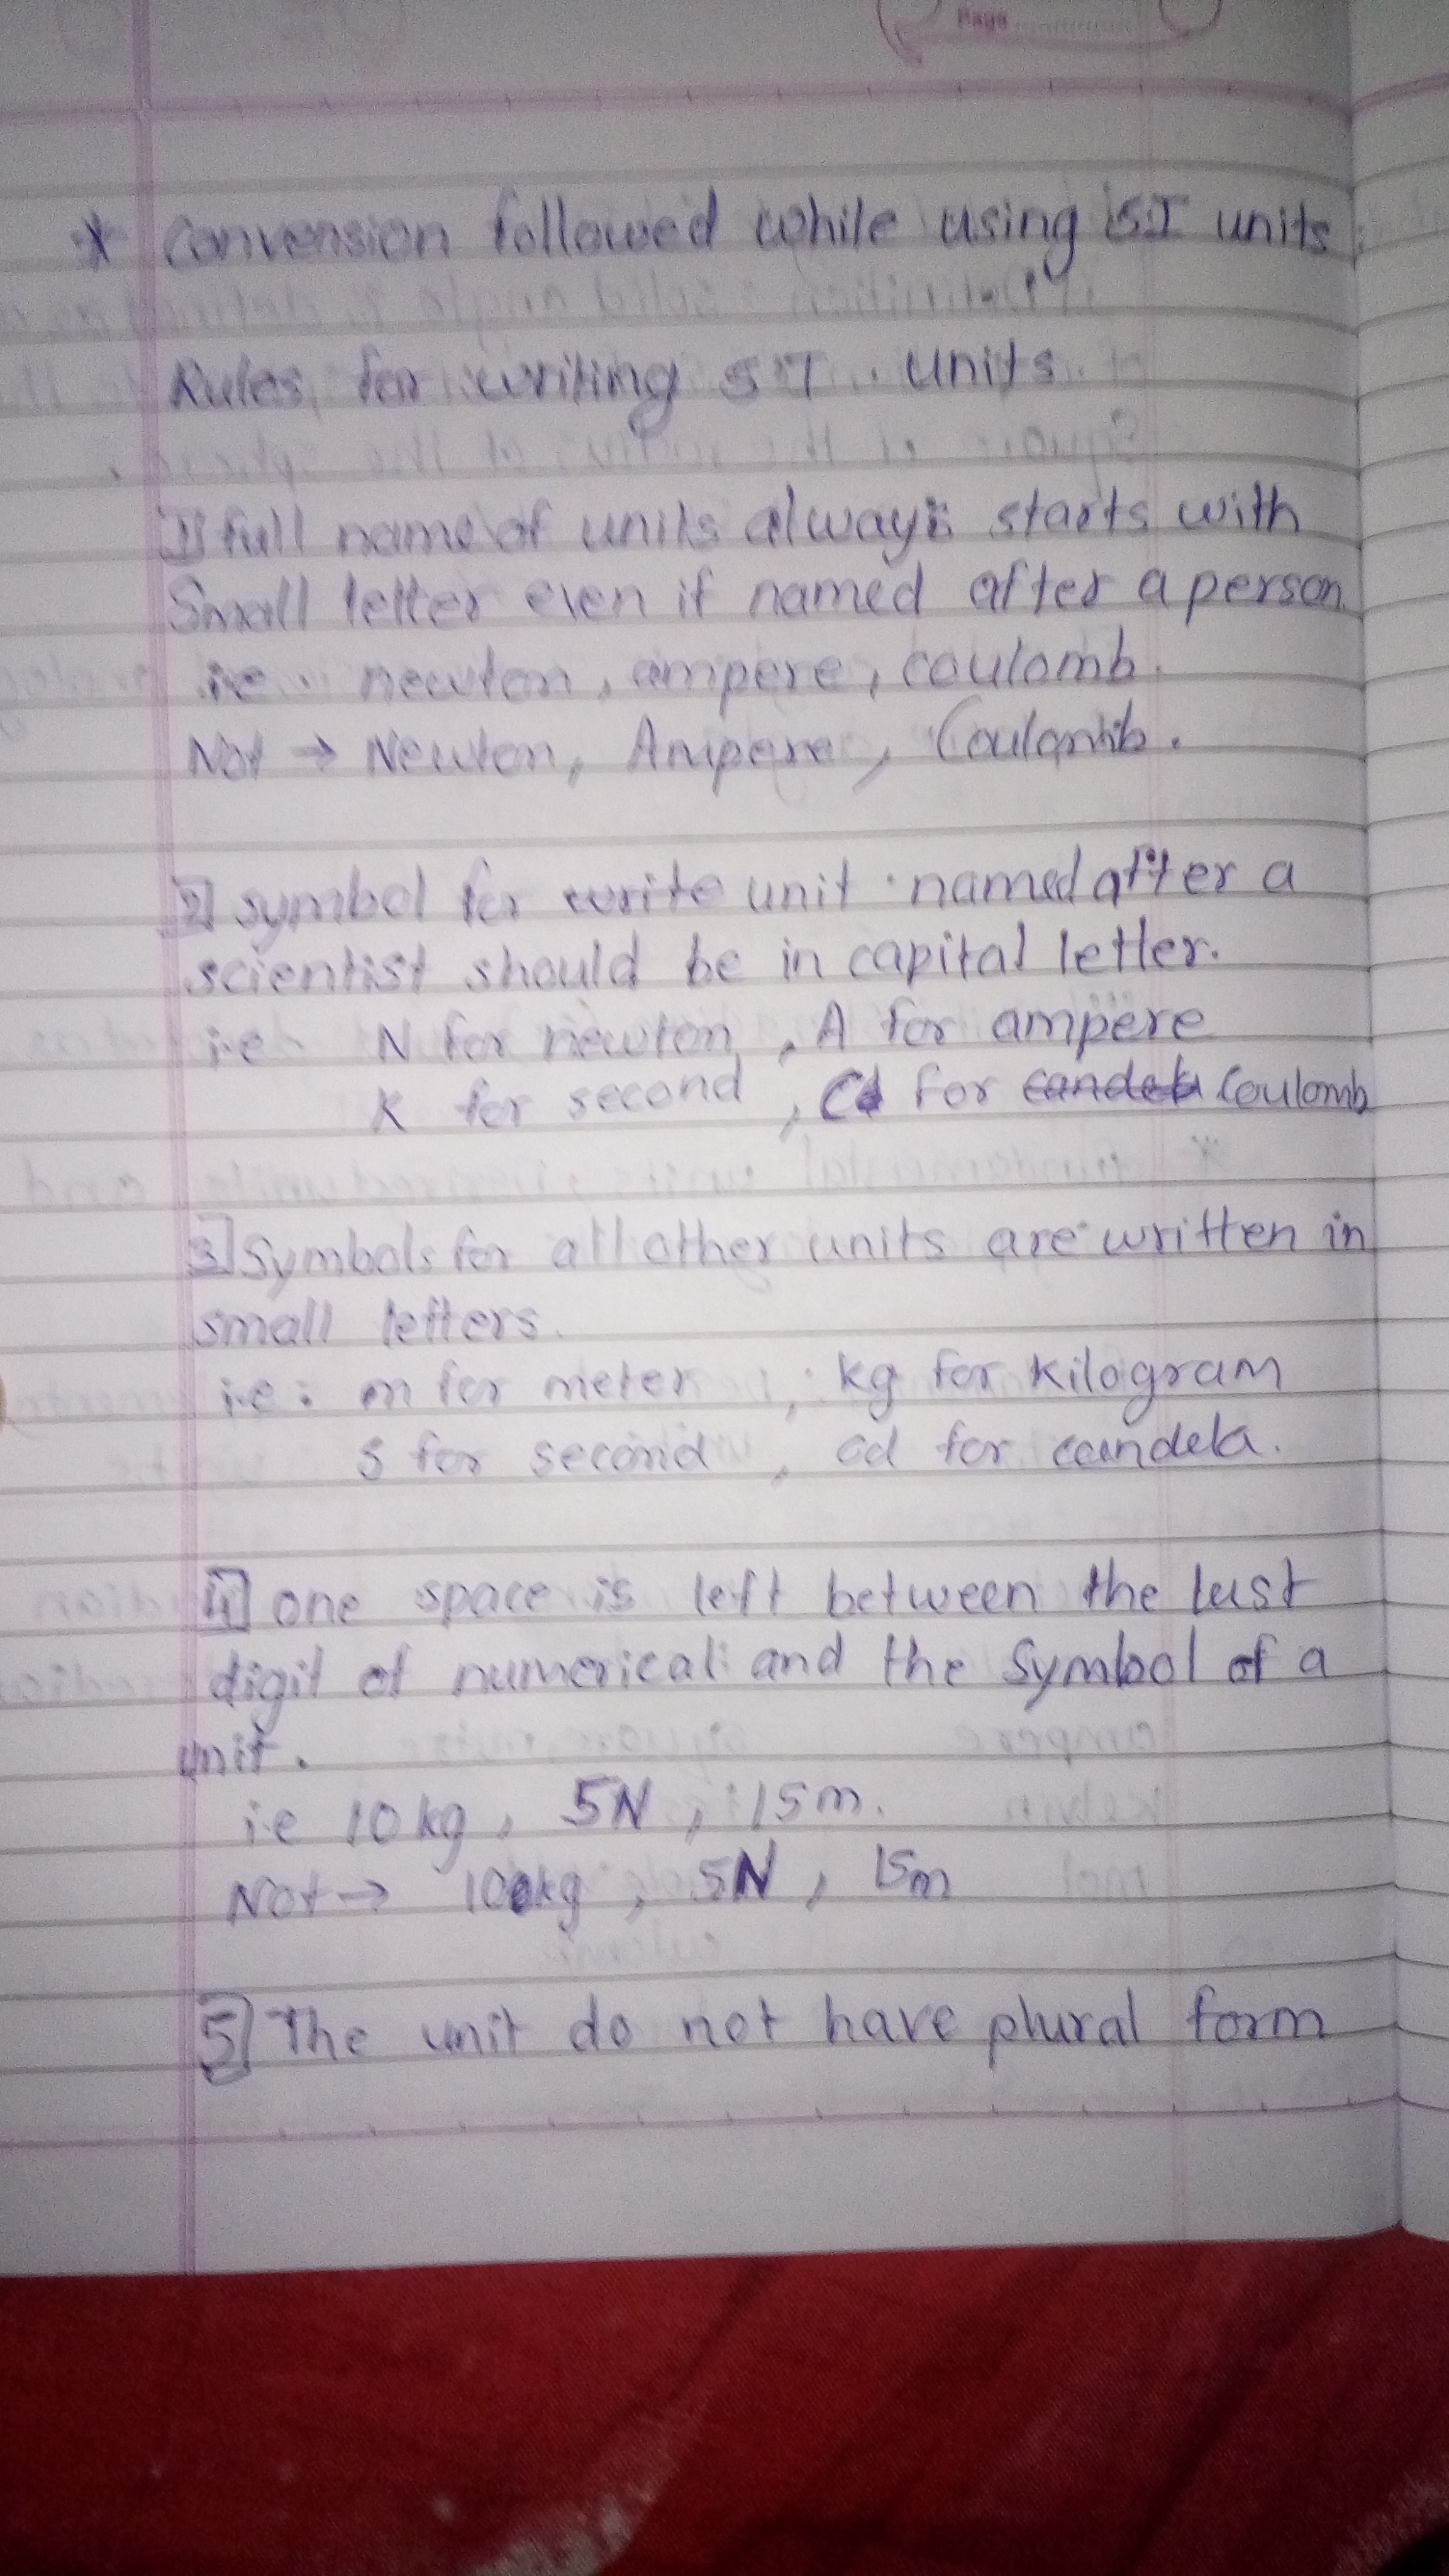 Page
* Convension followed while using SI units
Rules for writing S I. units.
1] full name of units always starts with
Small letter even if named after a person
i.e. newton, ampere, coulomb.
Not → Newton, Ampere, Coulomb.
2] symbol for write unit named after a
scientist should be in capital letter.
i.e N for newton, A for ampere
K for second, C for candela Coulomb
3] Symbols for all other units are written in
small letters.
i.e: m for meter, kg for kilogram
s for second, cd for candela.
4] one space is left between the last
digit of numerical and the symbol of a
unit.
i.e 10 kg, 5 N, 15 m.
Not → 10kg, 5N, 15m
5] The unit do not have plural form